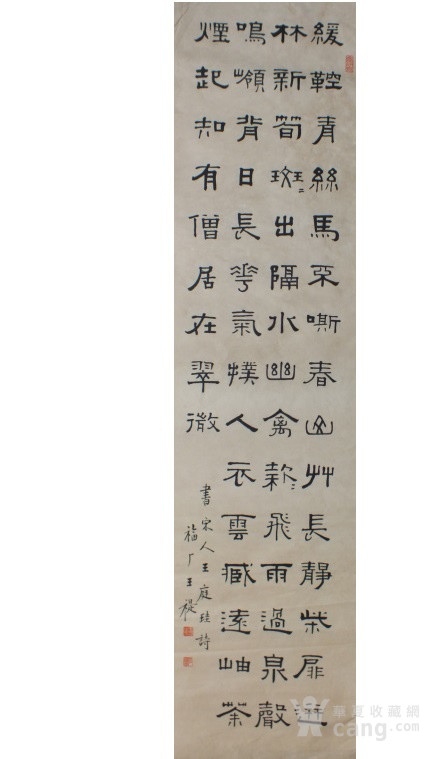 緩鞚青絲馬不嘶春山艸長靜柴扉遶
林新筍斑〻出隔水幽禽款〻飛雨過泉聲
鳴嶺背日長華氣撲人衣雲臧遠岫茶
煙起知有僧居在翠微
書宋人王庭珪詩
福厂王禔
華夏收藏網
cang.com